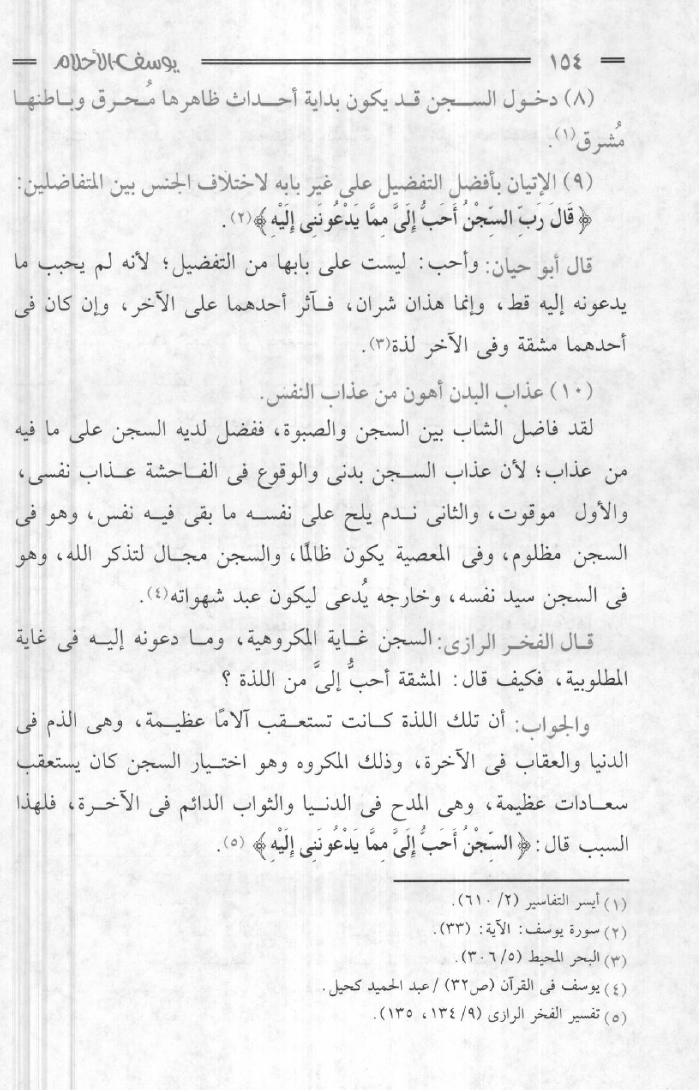 ١٥٤ يوسف الأحلام
(٨) دخول السجن قد يكون بداية أحداث ظاهرها مُحرق وباطنها
مُشرق(١).
(٩) الإتيان بأفضل التفضيل على غير بابه لاختلاف الجنس بين المتفاضلين:
﴿ قَالَ رَبِّ السِّجْنُ أَحَبُّ إِلَىَّ مِمَّا يَدْعُونَنِى إِلَيْهِ ﴾(٢).
قال أبو حيان: وأحب: ليست على بابها من التفضيل؛ لأنه لم يحبب ما
يدعونه إليه قط، وإنما هذان شران، فآثر أحدهما على الآخر، وإن كان فى
أحدهما مشقة وفى الآخر لذة(٣).
(١٠) عذاب البدن أهون من عذاب النفس.
لقد فاضل الشاب بين السجن والصبوة، ففضل لديه السجن على ما فيه
من عذاب؛ لأن عذاب السجن بدنى والوقوع فى الفاحشة عذاب نفسى،
والأول موقوت، والثانى ندم يلح على نفسه ما بقى فيه نفس، وهو فى
السجن مظلوم، وفى المعصية يكون ظالمًا، والسجن مجال لتذكر الله، وهو
فى السجن سيد نفسه، وخارجه يُدعى ليكون عبد شهواته(٤).
قال الفخر الرازى: السجن غاية المكروهية، وما دعونه إليه فى غاية
المطلوبية، فكيف قال: المشقة أحبُّ إلىَّ من اللذة ؟
والجواب: أن تلك اللذة كانت تستعقب آلامًا عظيمة، وهى الذم فى
الدنيا والعقاب فى الآخرة، وذلك المكروه وهو اختيار السجن كان يستعقب
سعادات عظيمة، وهى المدح فى الدنيا والثواب الدائم فى الآخرة، فلهذا
السبب قال: ﴿ السِّجْنُ أَحَبُّ إِلَىَّ مِمَّا يَدْعُونَنِى إِلَيْهِ ﴾ (٥).
(١) أيسر التفاسير (٢/ ٦١٠).
(٢) سورة يوسف: الآية: (٣٣).
(٣) البحر المحيط (٥/ ٣٠٦).
(٤) يوسف فى القرآن (ص٣٢) /عبد الحميد كحيل.
(٥) تفسير الفخر الرازى (٩/ ١٣٤، ١٣٥).